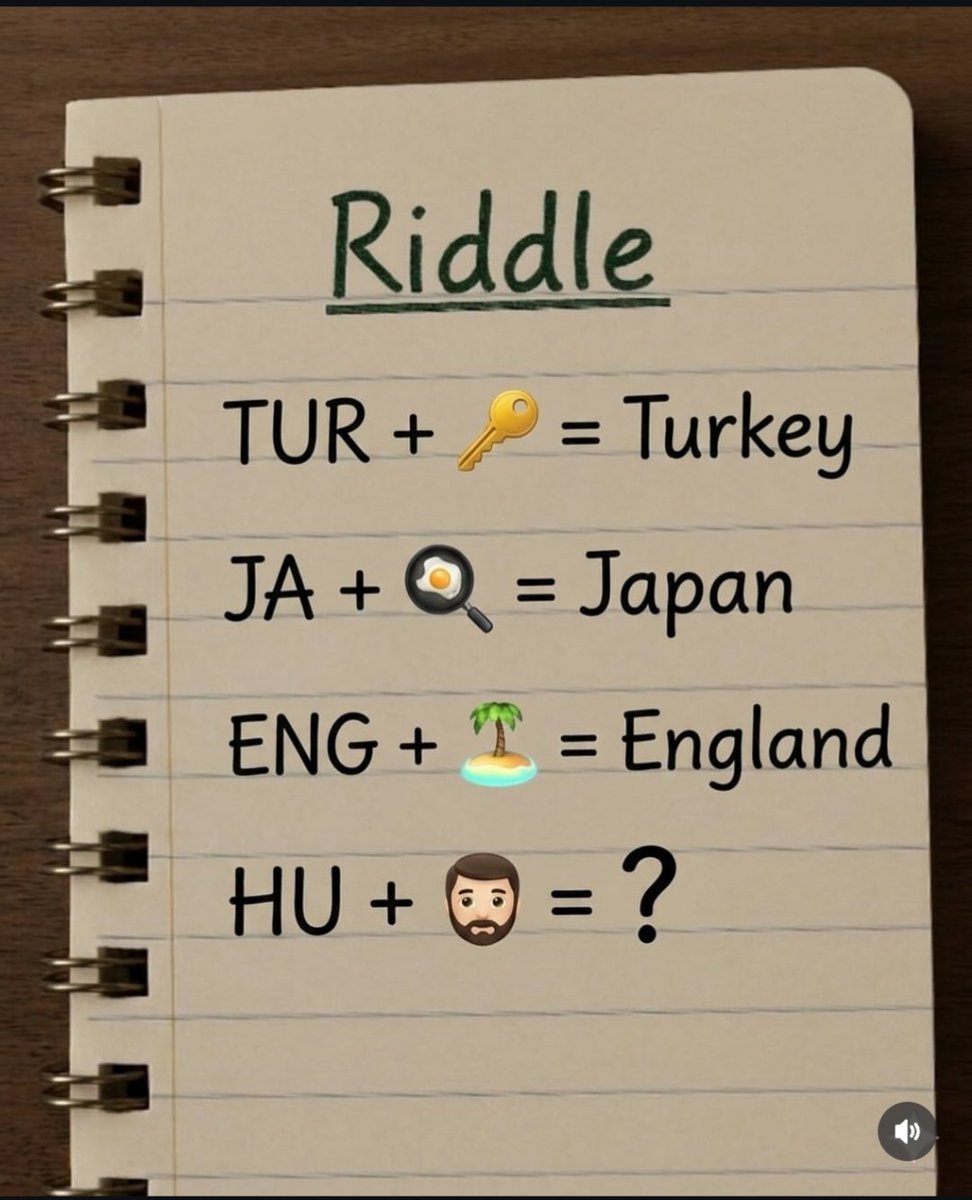 Riddle
TUR + 🔑 = Turkey
JA + 🍳 = Japan
ENG + 🏝️ = England
HU + 🧔🏻 = ?